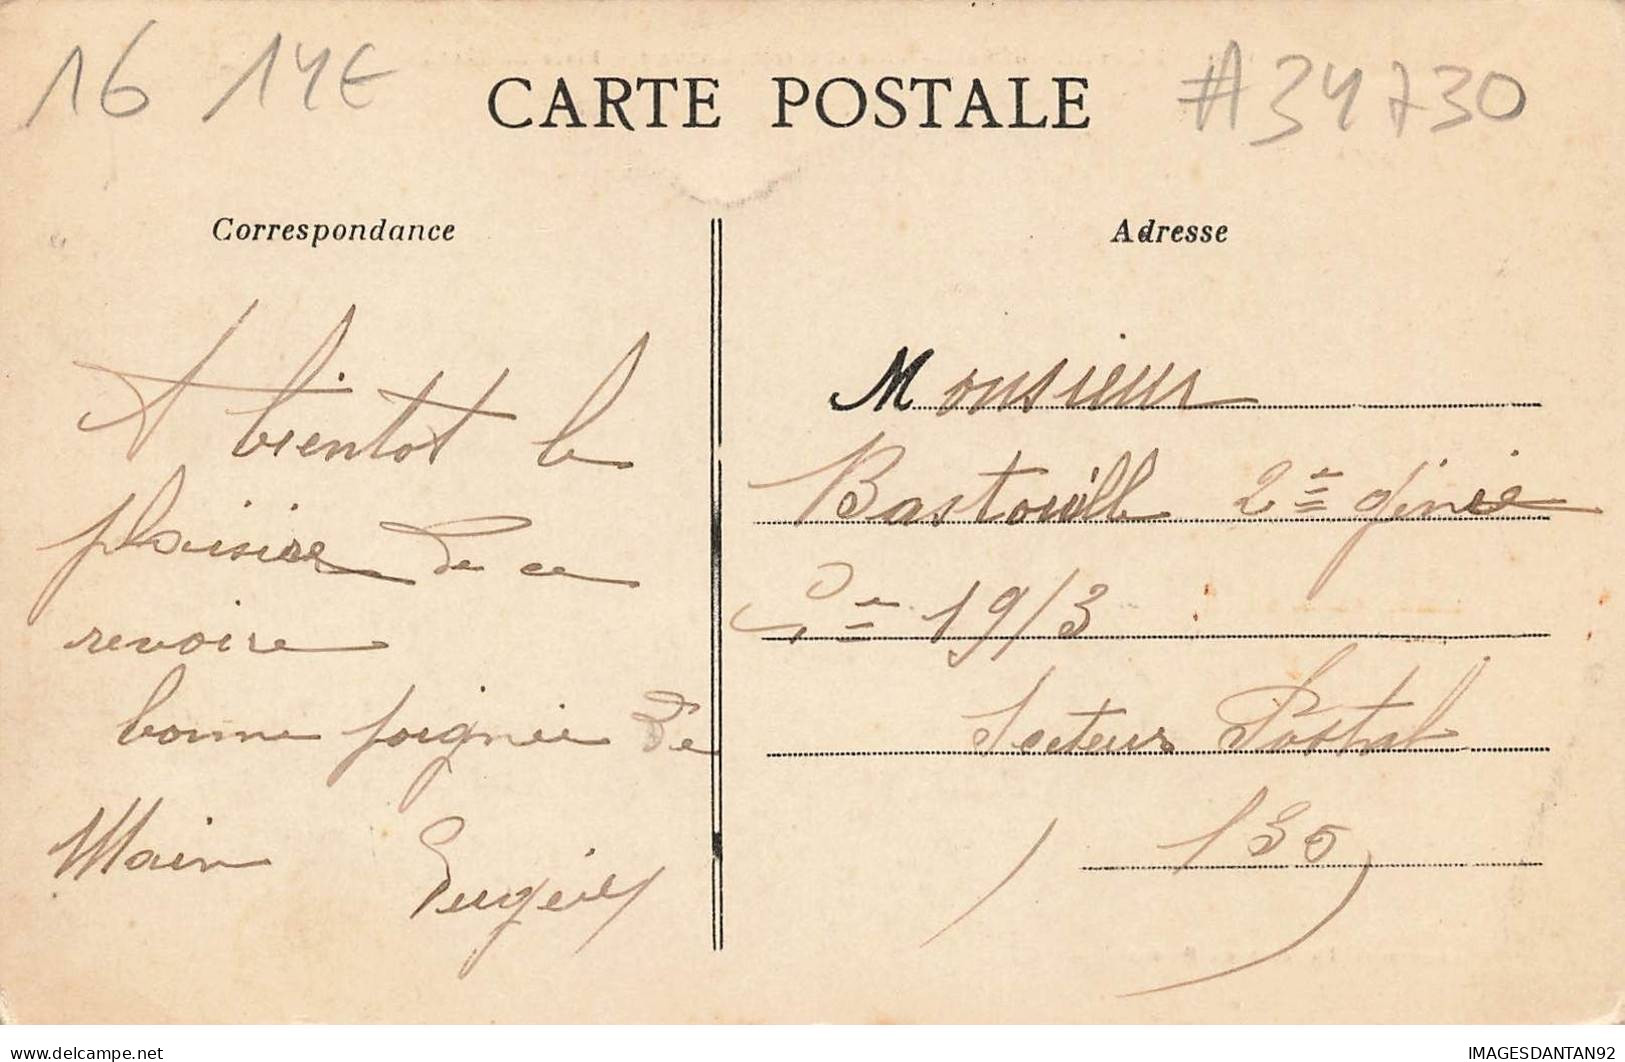 16 14€
#34730
CARTE POSTALE
Correspondance
A bientot le
plaisire de ce
revoire
bonne poignée de
Main
Adresse
Monsieur
Bastouill 2e génie
Cie 19/3
Secteur Postal
135
www.delcampe.net
IMAGESDANTAN92